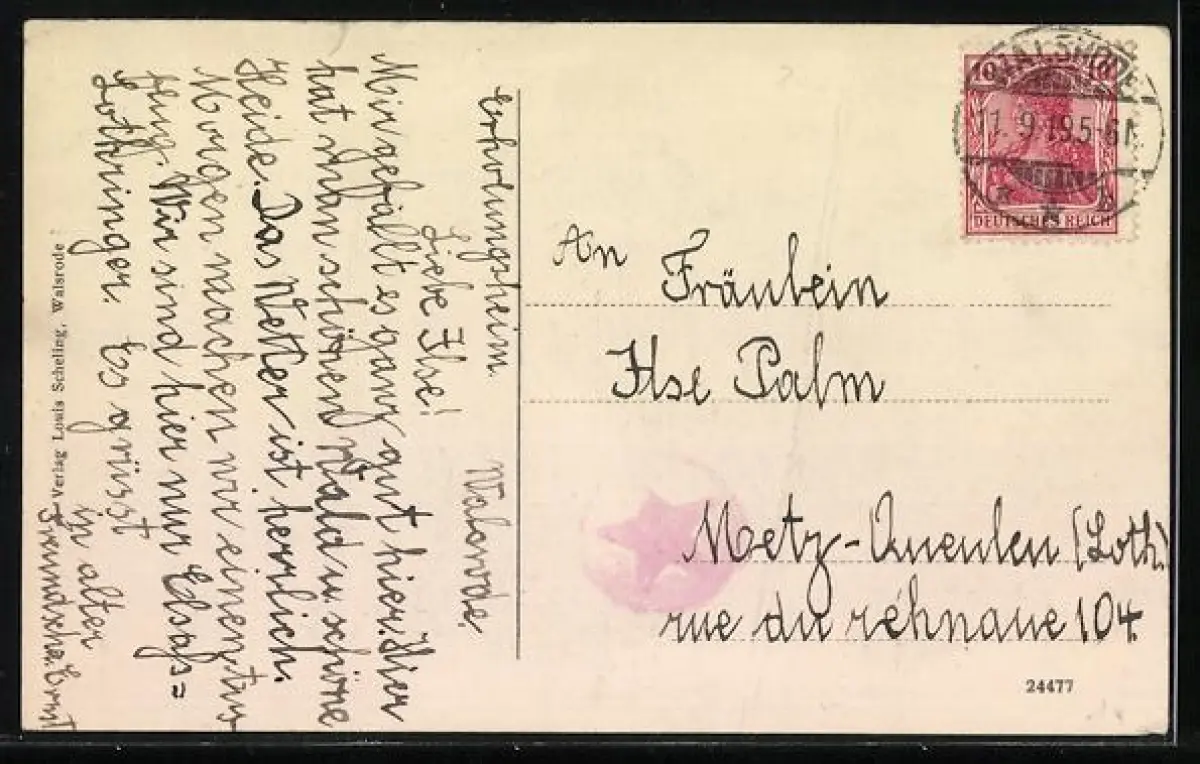 Erholungsheim Walsrode.
Liebe Ilse!
Mir gefällt es ganz gut hier. Hier
hat man schönen Wald u. schöne
Heide. Das Wetter ist herrlich.
Morgen machen wir einen Aus
flug. Wir sind hier nur Elsaß=
Lothringer. Es grüsst
in alter
Freundschaft Ernst
Verlag Louis Scheling, Walsrode
10 10
DEUTSCHES REICH
WALSRODE
9 19 5-6N
An Fräulein
Ilse Palm
Metz-Queulen (Loth)
rue du 104
24477